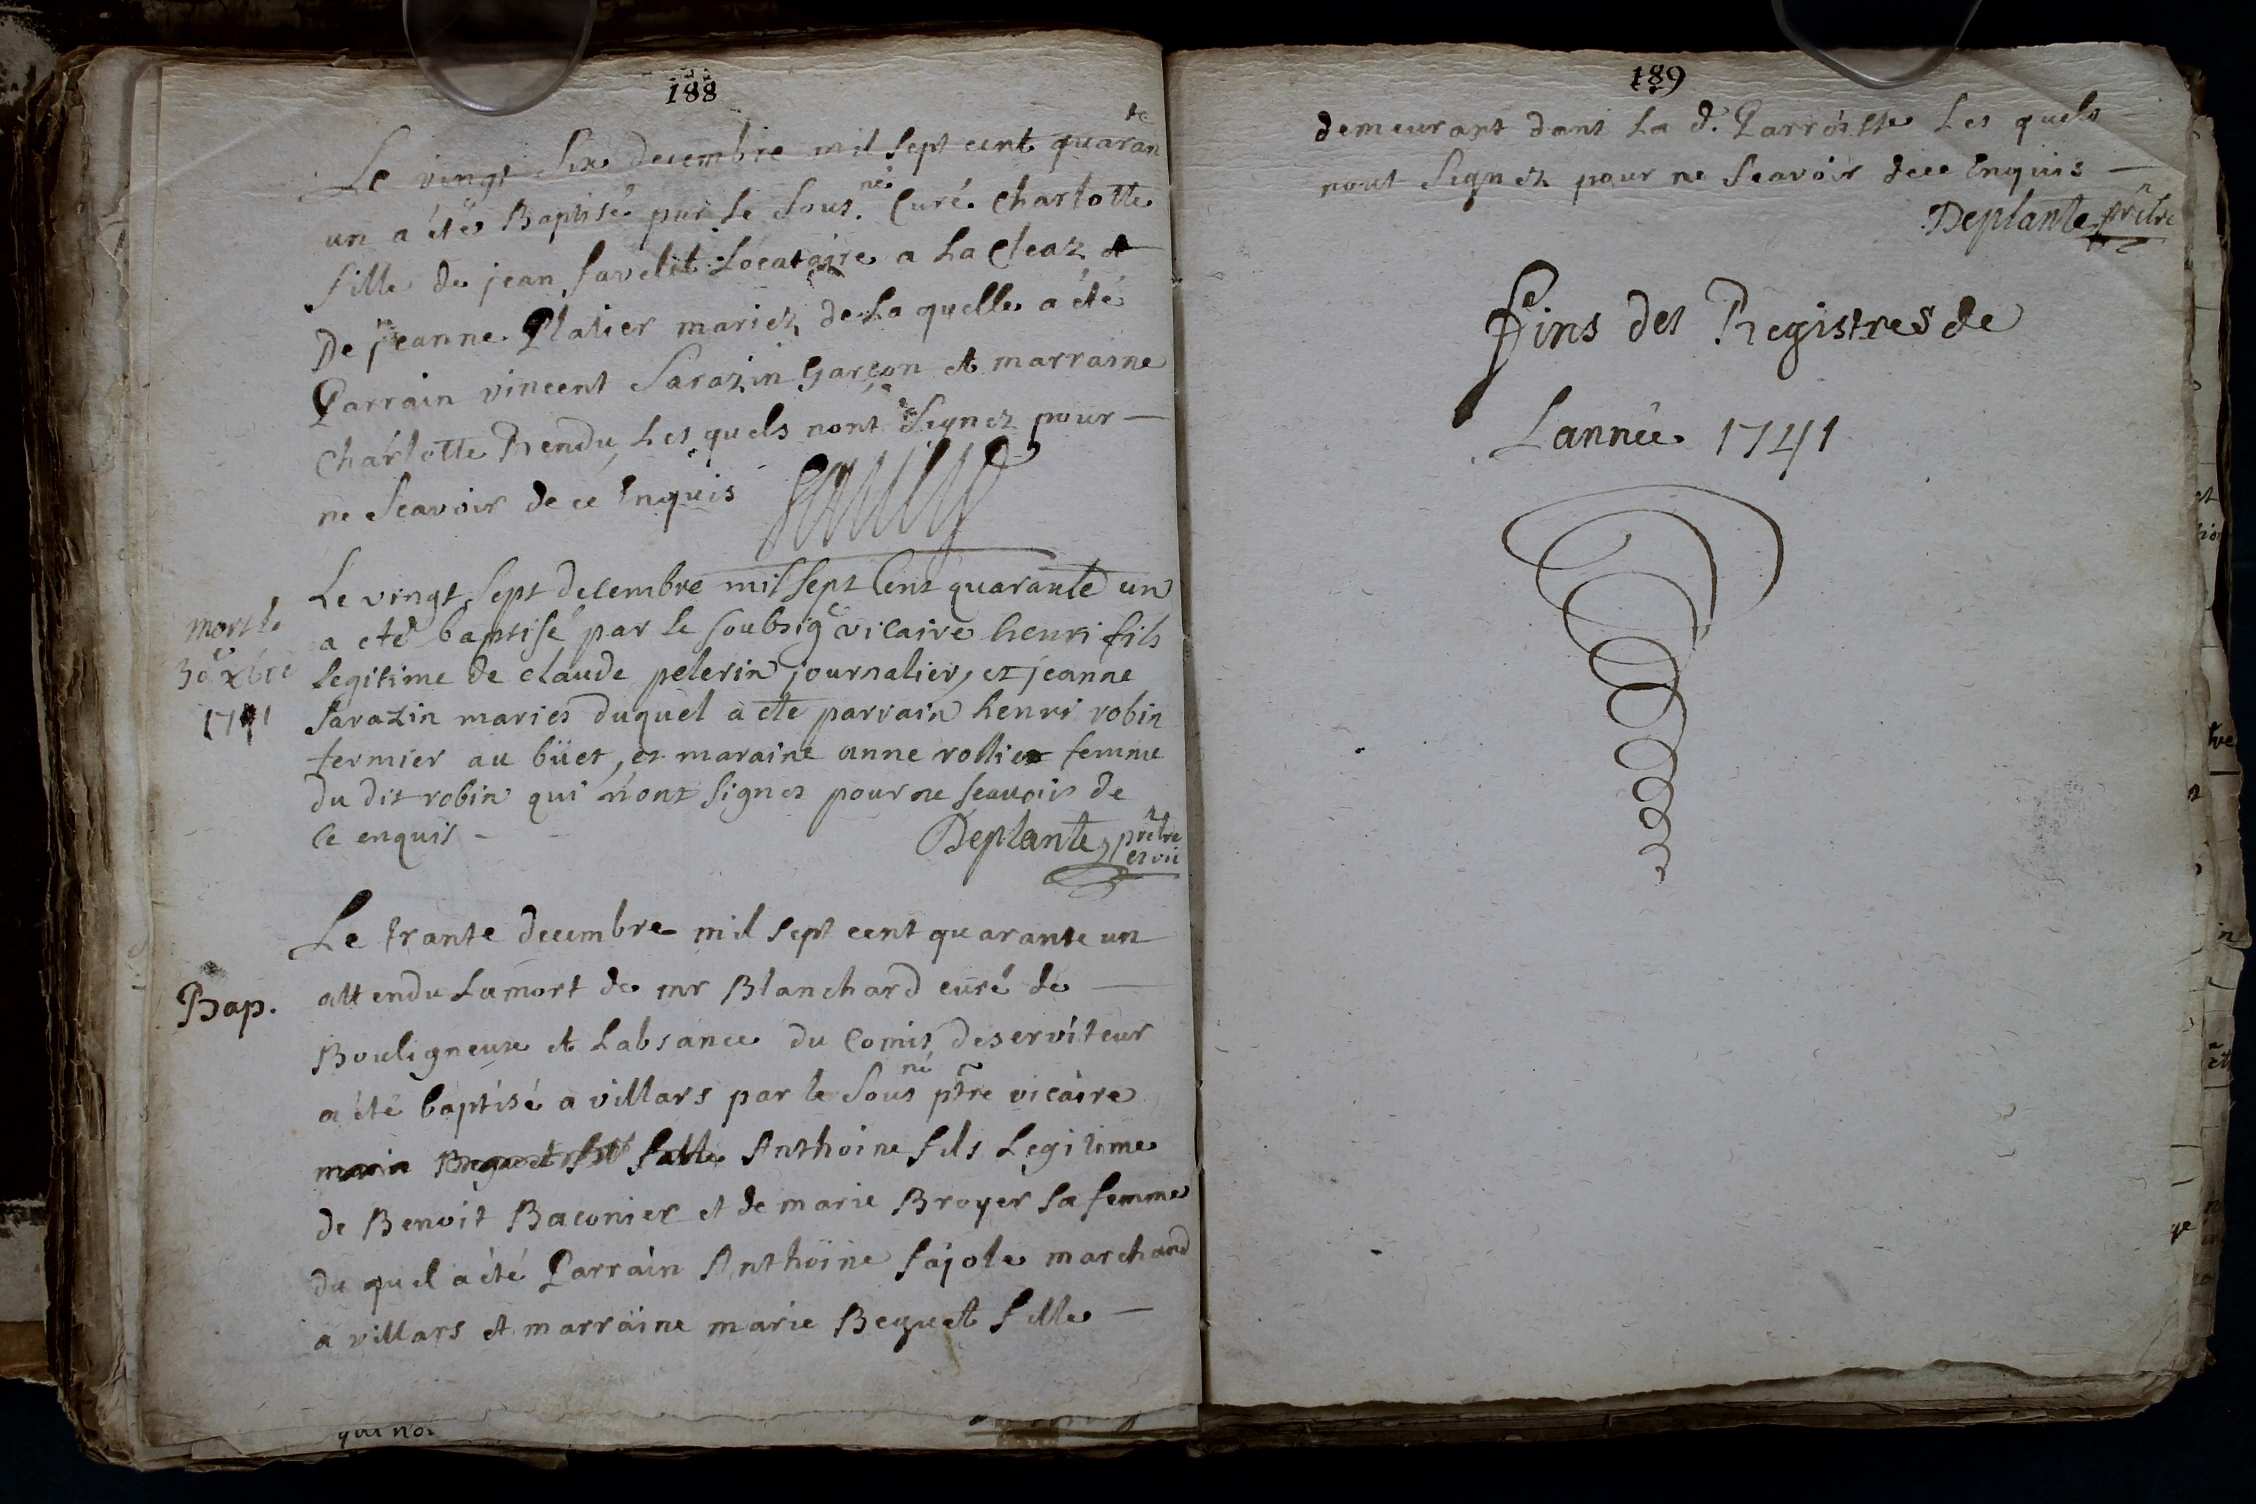 188
Le vingt Six decembre mil Sept cent quaran te
un a été Baptisé par Le Sous.né Curé Charlotte
fille de jean favelit Locataire a La Cleaz et
De jeanne Platier mariez de La quelle a été
Parrain vincent Sarazin Garçon et marraine
Charlotte Rendu, Les quels nont Signez pour
ne Scavoir de ce Enquis
Le vingt Sept decembre mil Sept Cent quarante un
a eté baptisé par le soubsigé vicaire henri fils
legitime de claude pelerin journalier, et jeanne
sarazin mariés duquel a ete parrain henri robin
fermier au büet, et maraine anne rollier femme
du dit robin qui n'ont signés pour ne scavoir de
ce enquis
Deplante, prêtre
et vic
mort le
30e xbre
1741
Bap.
Le trante decembre mil Sept cent quarante un
attendu La mort de mr Blanchard curé de
Bouligneux et Labsance du Comis, deserviteur
a été baptisé a villars par le Sous né ptre vicaire
marie Beguet fille Anthoine fils Legitime
de Benoit Baconier et de marie Broyer Sa femme
du quel a été Parrain Anthoine fajole marchand
a villars et marraine marie Beguet fille
qui no
189
demeurant dans La d. Parroisse Les quels
nont Signez pour ne Scavoir de ce Enquis
Deplante prêtre
Fins des Registres de
Lannée 1741